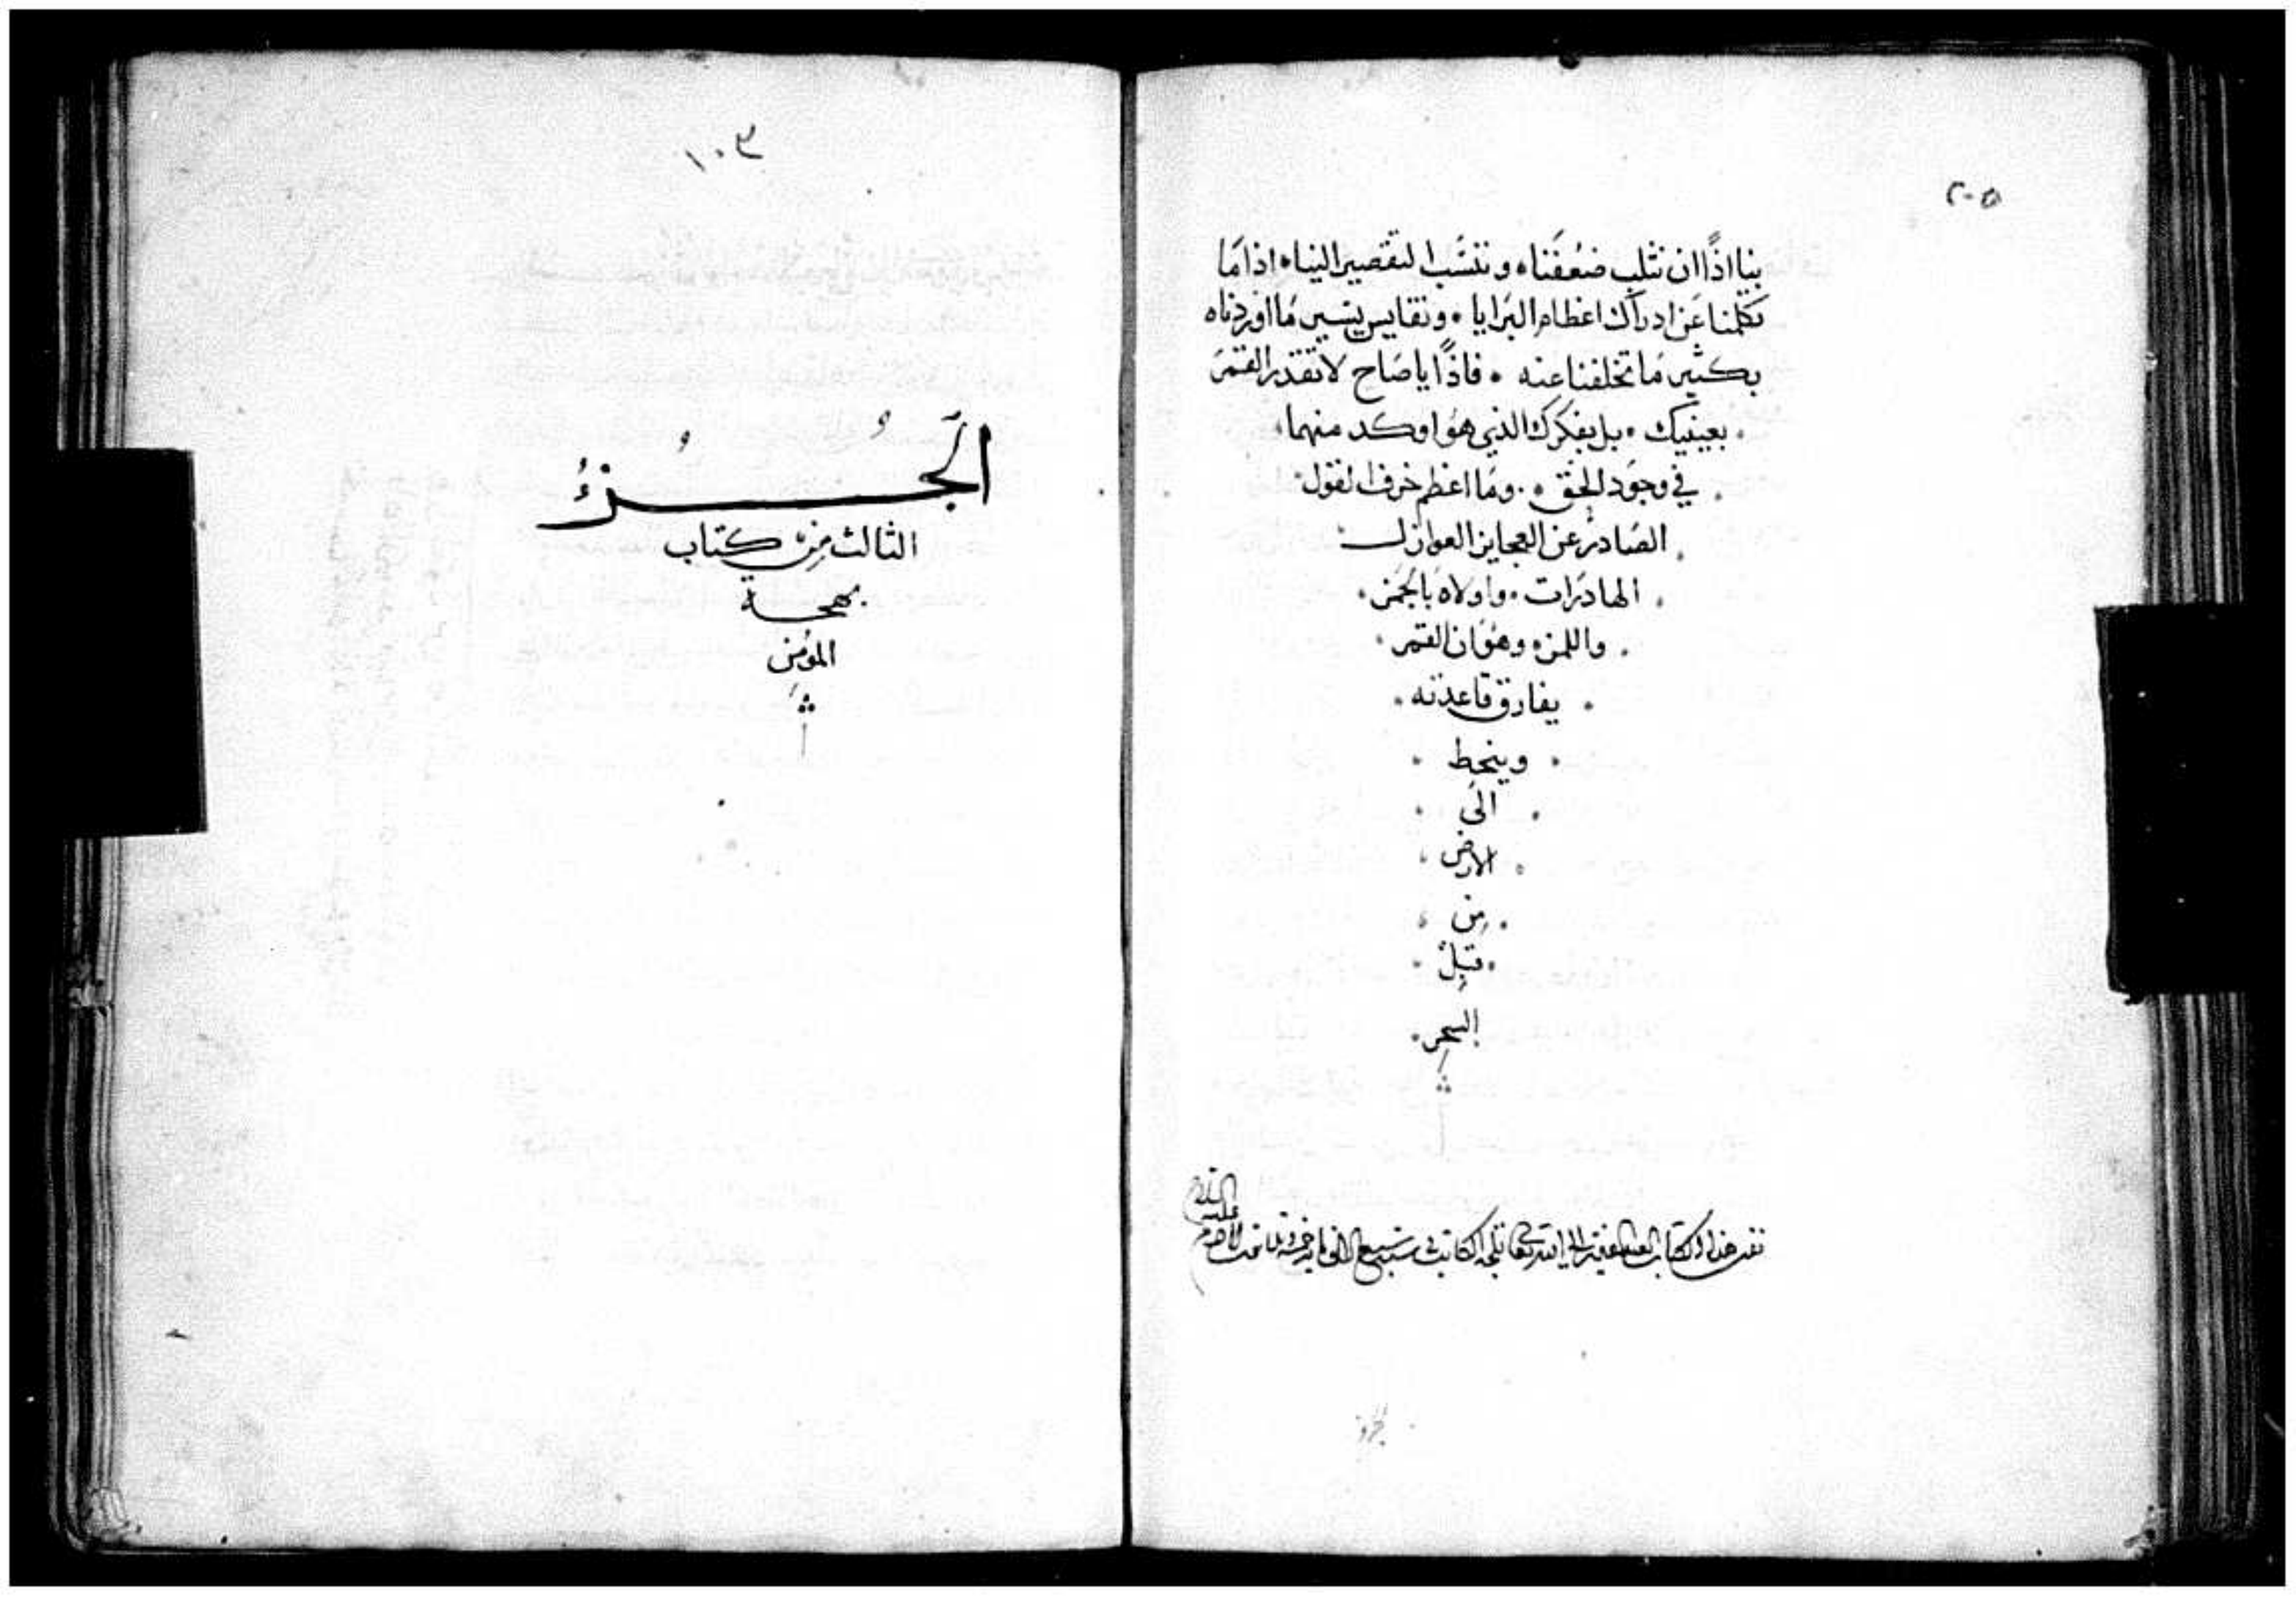 ٢٠٥
بنا اذًا ان نثلب ضعفنا، وننسب التقصير الينا، اذا ما
تكلمنا عن ادراك اعظام البرايا، ونقايس يسير ما اوردناه
بكثير ما تخلفنا عنه، فاذًا يا صاح لا تفتقد القمر
بعينيك، بل بفكرك الذي هو اوكد منهما،
في وجود الحق، وما اعظم خرف القول
الصادر عن العجايز العوازل
الهادرات، واولاه بالجمز،
واللمز، وهو ان القمر،
يفارق قاعدته،
وينحط
الى
الارض
من
قبل
السحر
١٠٣
الجُزءُ
الثالث من كتاب
بهجة
المؤمن